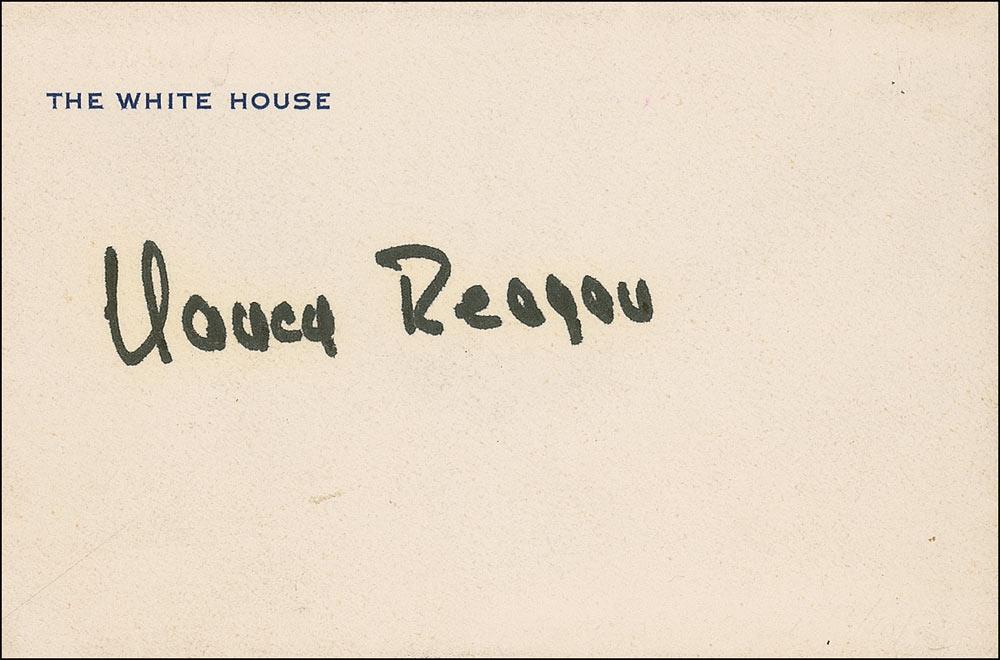 THE WHITE HOUSE
Nancy Reagan